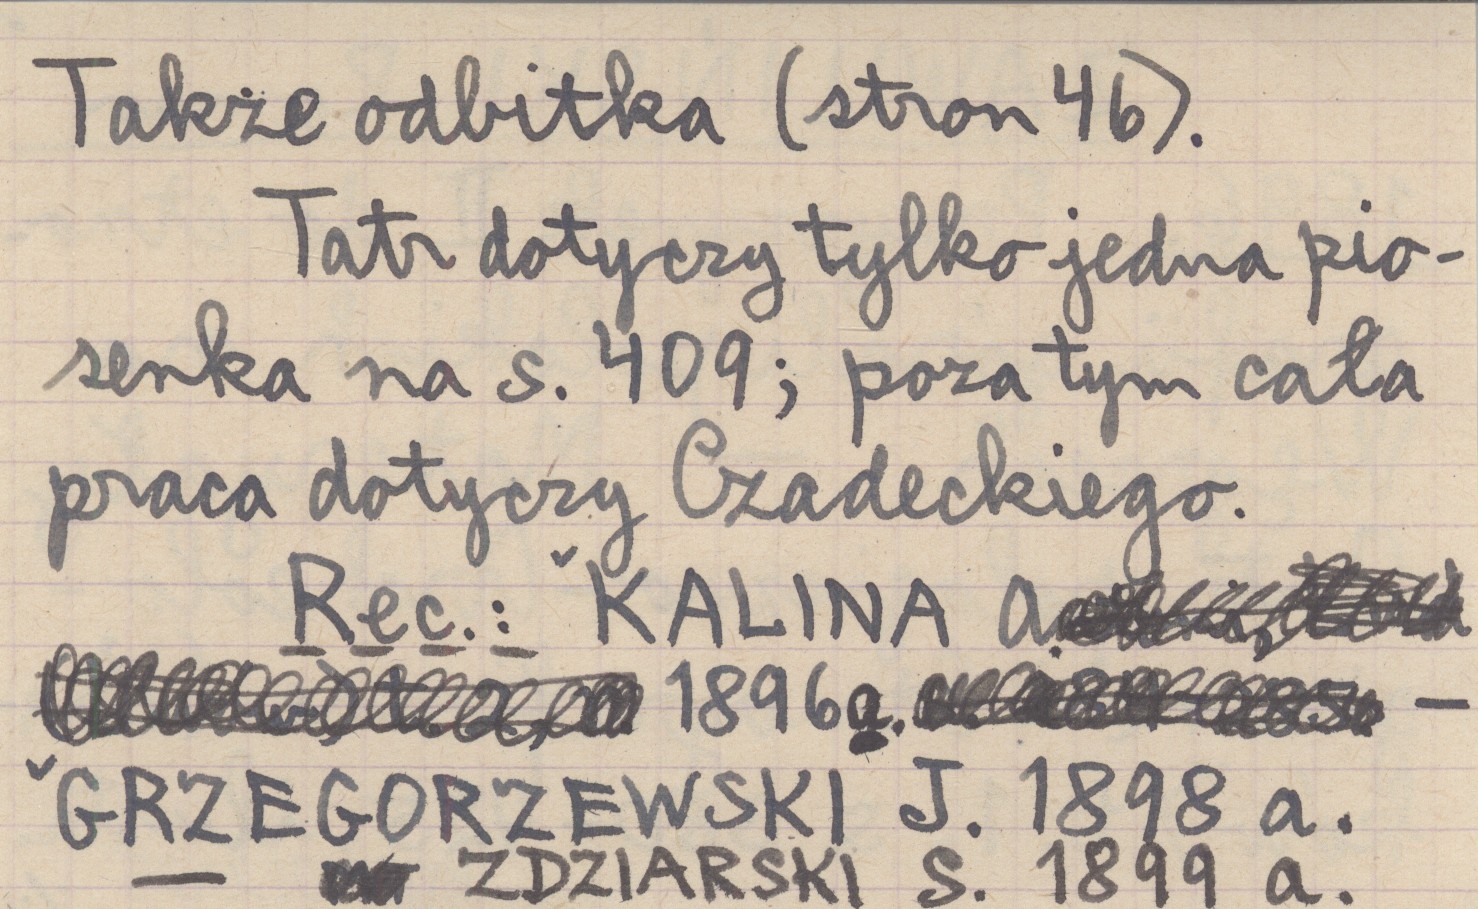 Także odbitka (stron 46).
Tatr dotyczy tylko jedna pio-
senka na s. 409; poza tym cała
praca dotyczy Czadeckiego.
Rec.: ˇKALINA A.
1896a. —
ˇGRZEGORZEWSKI J. 1898 a.
— ZDZIARSKI S. 1899 a.